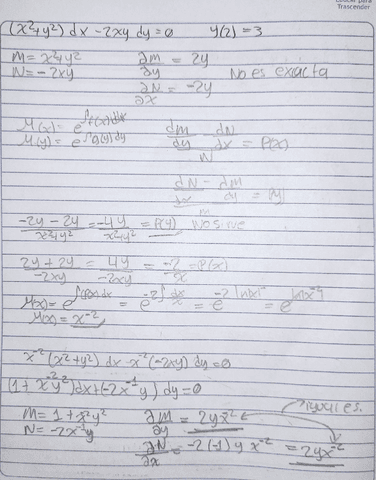 Trascender
(x²+y²) dx -2xy dy=0   y(2)=3
M=x²+y²   ∂m/∂y = 2y
N=-2xy   ∂N/∂x = -2y   No es exacta
M(x)= e^∫f(x)dx   (dm/dy - dN/dx)/N = P(x)
M(y)= e^∫g(y)dy
(dN/dx - dM/dy)/m = (y)
(-2y-2y)/(x²+y²) = -4y/(x²+y²) = P(y) No sirve
(2y+2y)/(-2xy) = 4y/(-2xy) = -2/x = P(x)
M(x)= e^∫p(x)dx = e^-2∫dx/x = e^-2 ln|x| = e^ln|x|^-2
M(x)= x^-2
x^-2 (x²+y²) dx - x^-2(-2xy) dy=0
(1+x^-2y²)dx+(-2x^-1y) dy=0
M=1+x^-2y²   ∂M/∂y = 2yx^-2   iguales.
N=-2x^-1y   ∂N/∂x = -2(-1) y x^-2 = 2yx^-2